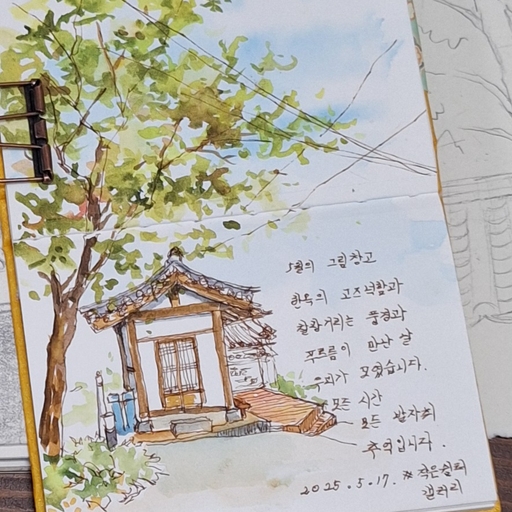 5월의 그림창고
한옥의 고즈넉함과
찰랑거리는 풍경과
푸르름이 만난 날
우리가 모였습니다.
모든 시간
모든 발자취
추억입니다.
2025.5.17. ※ 작은쉼터
갤러리